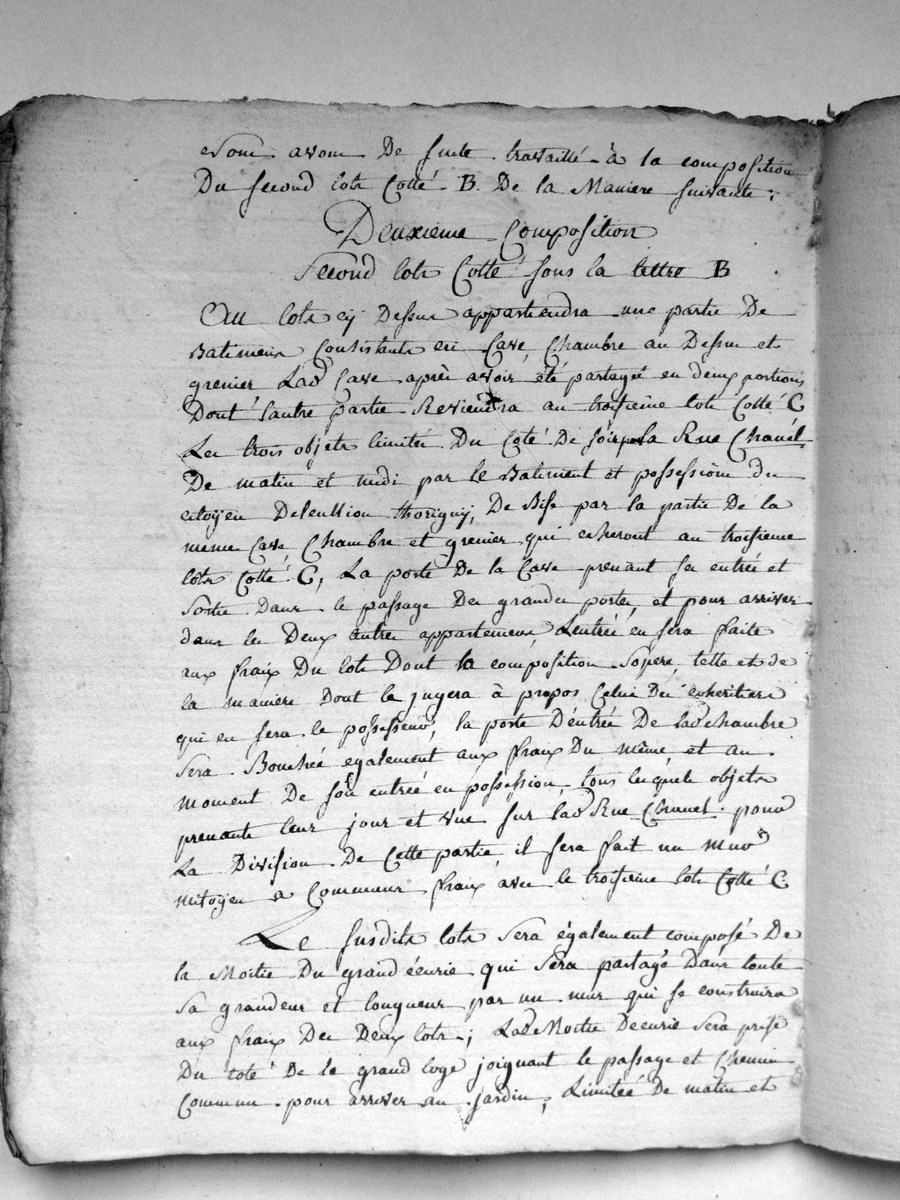 Nous avons De suite travaillé à la composition
Du second lots Cotté B. De la Maniere suivante:
Deuxieme Composition
Second lots Cotté sous la lettre B
Au lots cy Dessus appartiendra une partie De
Batimens Consistants en Cave, Chambre au Dessus et
grenier Lad Cave après avoir été partagé en deux portions
Dont l'autre partie Reviendra au troisième lots Cotté C
Les trois objets limités Du Coté De soir par la Rue Chanel
De matin et midi par le Batiment et possessions du
citoyen Thorigny, De Bise par la partie De la
meme Cave Chambre et grenier qui echeront au troisieme
lots Cotté C, La porte De la Cave prenant son entrée et
Sortie Dans le passage Des grandes portes, et pour arriver
dans les Deux autres appartemens, Lentrée en sera faite
aux fraix Du lots Dont la composition S'opere, telle et de
la maniere Dont le jugera à propos Celui Des coheritiers
qui en sera le possesseur, la porte D'entrée De lad chambre
sera Bouchée également aux fraix Du même, et au
moment De son entrée en possession, tous lesquels objets
prenants leur jour et vue sur lad Rue Chanel. pour
La Division De Cette partie il sera fait un mur
mitoyen a Communs fraix avec le troisieme lots Cotté C
Le susdits lots Sera également composé De
la Moitié Du grand écurie qui Sera partagé Dans toute
Sa grandeur et longueur par un mur qui se construira
aux fraix Des Deux lots; Lad Moitié Decurie Sera prise
Du coté De la grand loge joignant le passage et Chemin
Commun pour arriver au jardin, Limitée De matin et